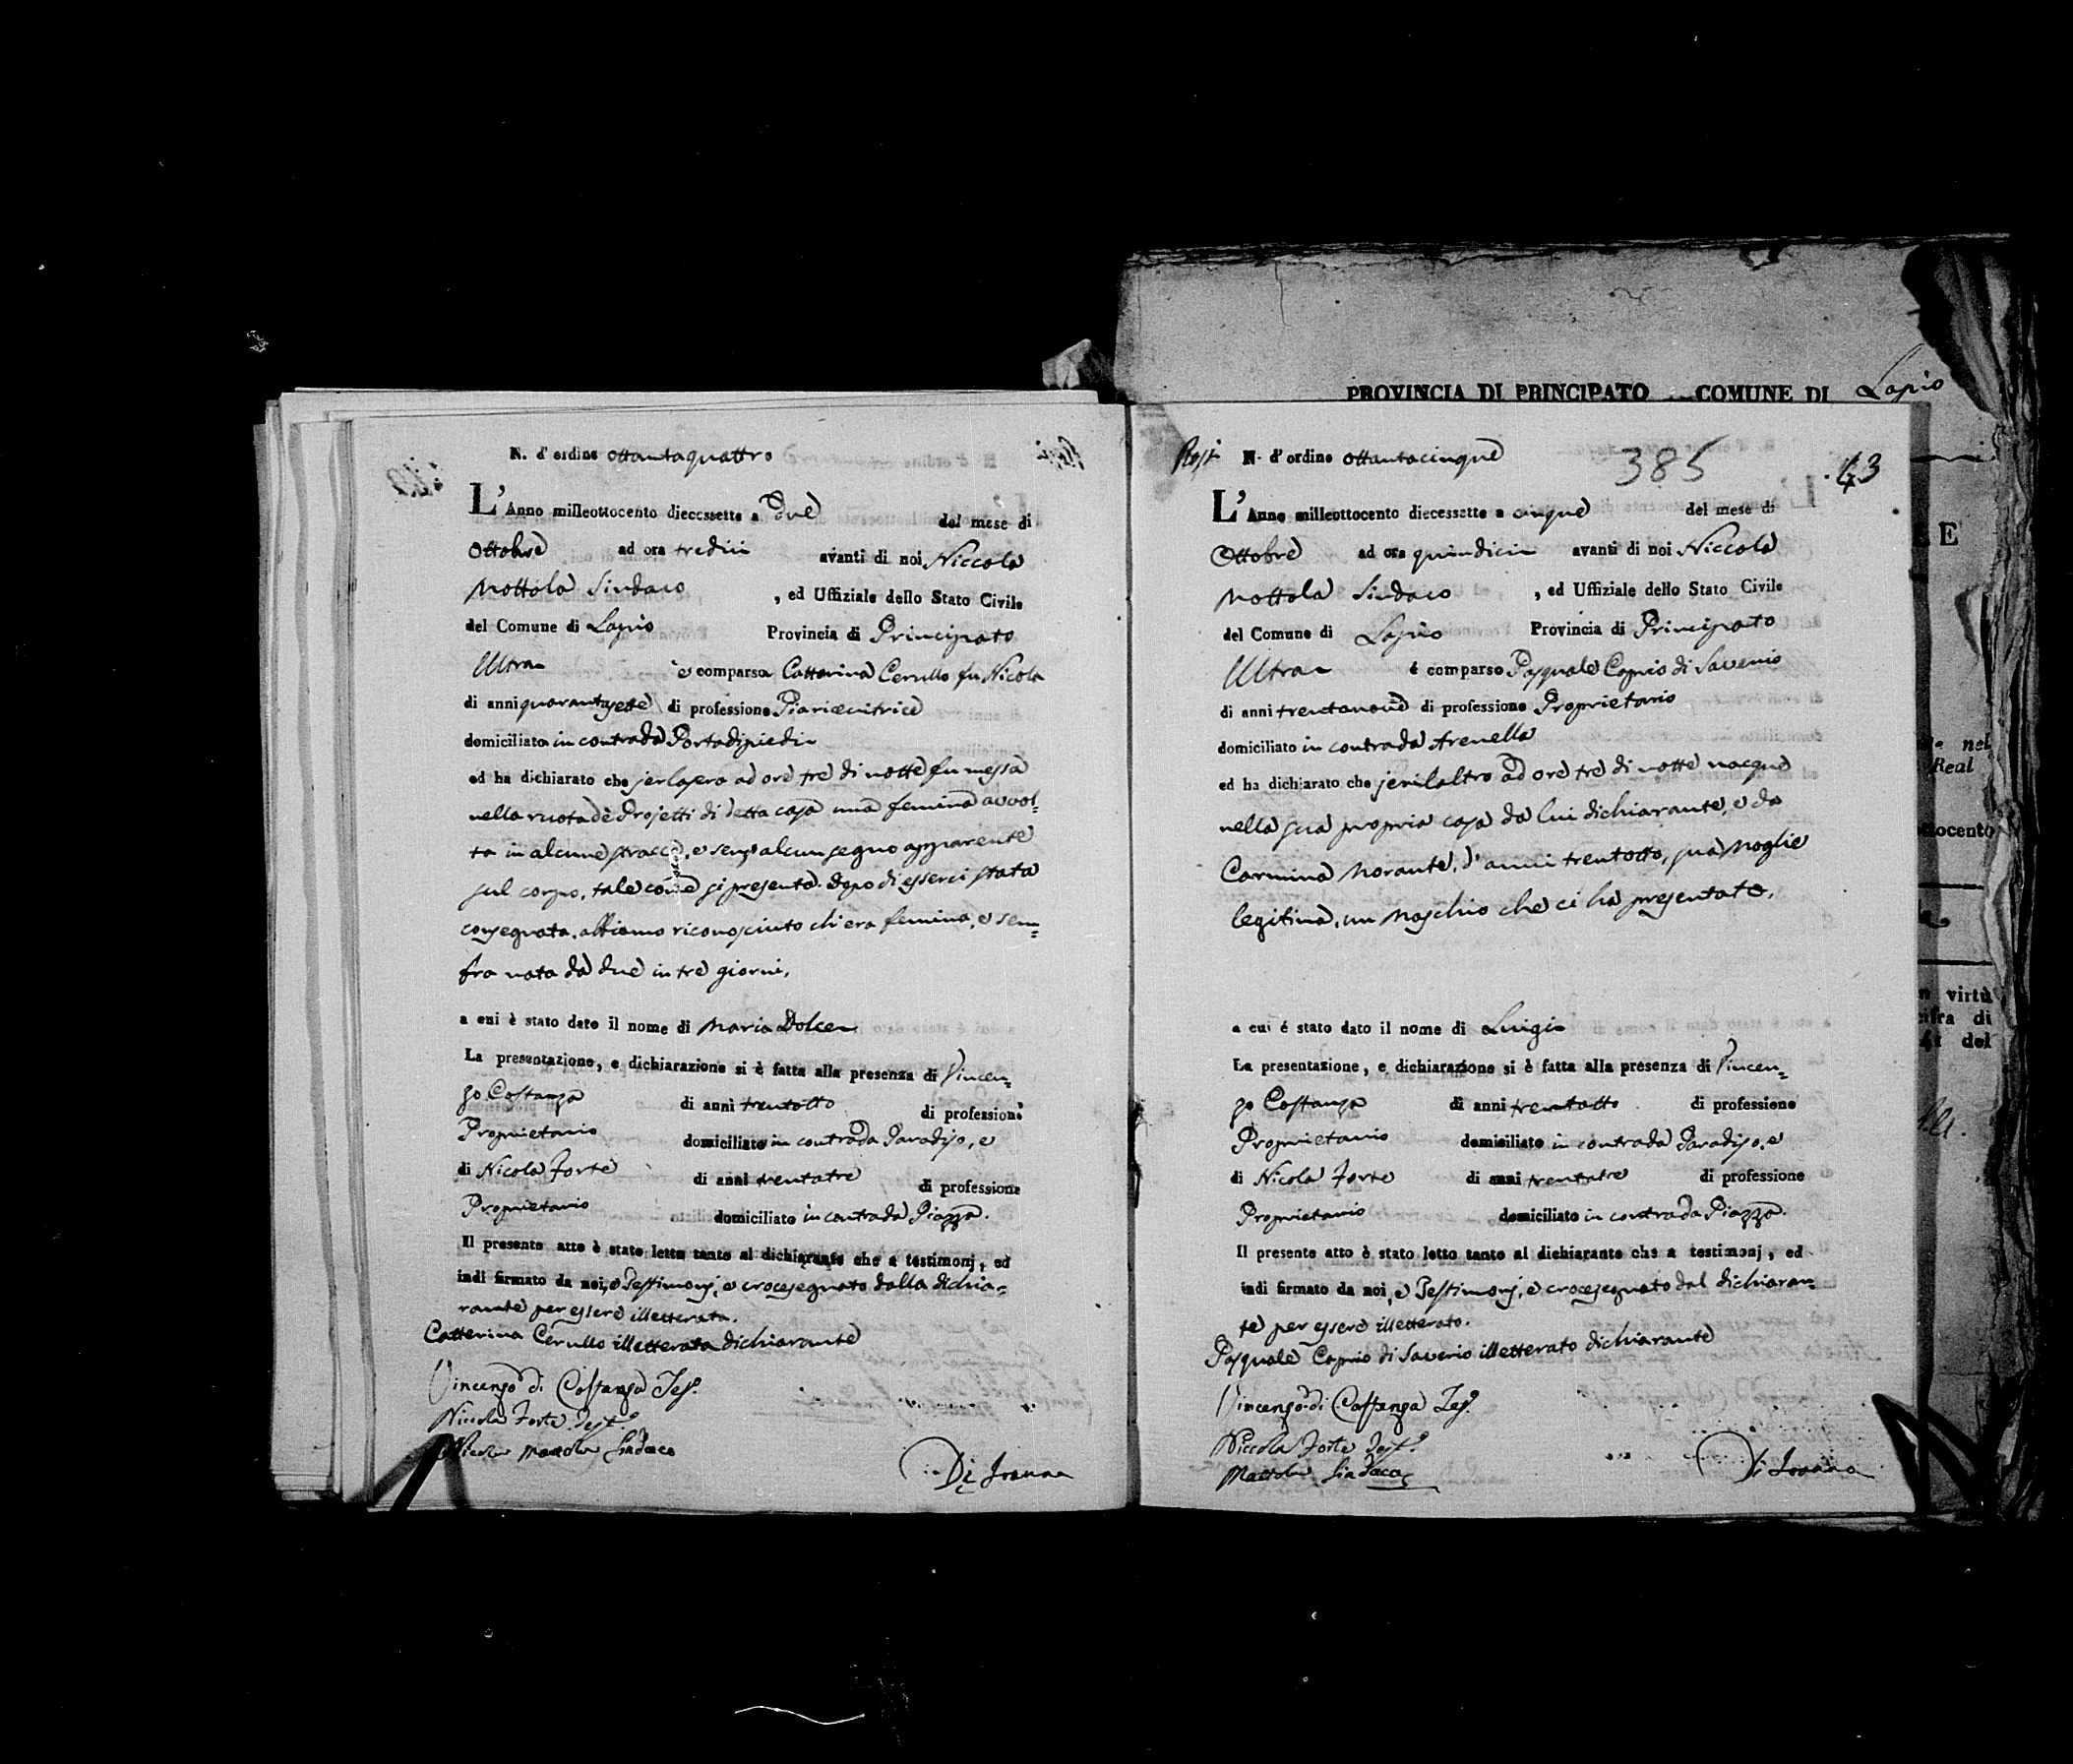 N. d'ordine ottantaquattro
L'Anno milleottocento diecessette a due del mese di
Ottobre ad ora tredici avanti di noi Niccola
Nottola Sindaco , ed Uffiziale dello Stato Civile
del Comune di Lapio Provincia di Principato
Ultra è comparsa Catterina Cerullo fu Nicola
di anni quarantasette di professione
domiciliata in contrada Portadipiedi
ed ha dichiarato che jerlasera ad ore tre di notte fu messa
nella ruota de Projetti di detta casa una femina avvol=
ta in alcune stracce, e senz'alcun segno apparente
sul corpo, tale come si presenta. Dopo di esserci stata
consegnata, abbiamo riconosciuto ch'era femina, e sem=
bra nata da due in tre giorni.
a cui è stato dato il nome di Maria Dolce
La presentazione, e dichiarazione si è fatta alla presenza di Vincen=
zo Costanza di anni trentotto di professione
Proprietario domiciliato in contrada Paradiso, e
di Nicola Forte di anni trentatre di professione
Proprietario domiciliato in contrada Piazza.
Il presente atto è stato letto tanto al dichiarante che a testimonj, ed
indi firmato da noi, e Testimonj, e crocesegnato dalla dichia=
rante per essere illetterata.
Catterina Cerullo illetterata dichiarante
Vincenzo di Costanza Tes.
Niccola Forte Test.
Nicola Nottola Sindaco
Di Ioanna
PROVINCIA DI PRINCIPATO COMUNE DI Lapio
N. d'ordine ottantacinque 385 43
L'Anno milleottocento diecessette a cinque del mese di
Ottobre ad ora quindici avanti di noi Niccola
Nottola Sindaco , ed Uffiziale dello Stato Civile
del Comune di Lapio Provincia di Principato
Ultra é comparso Pasquale Caprio di Saverio
di anni trentanove di professione Proprietario
domiciliato in contrada Arenella
ed ha dichiarato che jerilaltro ad ore tre di notte nacque
nella sua propria casa da lui dichiarante, e da
Carmina Morante, d'anni trentotto, sua Moglie
legitima, un Maschio che ci ha presentato.
a cui é stato dato il nome di Luigi
La presentazione, e dichiarazione si è fatta alla presenza di Vincen=
zo Costanza di anni trentotto di professione
Proprietario domiciliato in contrada Paradiso, e
di Nicola Forte di anni trentatre di professione
Proprietario domiciliato in contrada Piazza.
Il presente atto è stato letto tanto al dichiarante che a testimonj, ed
indi firmato da noi, e Testimonj, e crocesegnato dal dichiaran=
te per essere illetterato.
Pasquale Caprio di Saverio illetterato dichiarante
Vincenzo di Costanza Tes.
Niccola Forte Test.
Nottola Sindaco
Di Ioanna
E
nel
Real
ttocento
virtù
cifra di
del